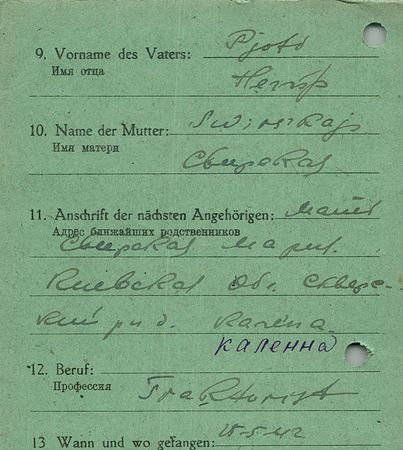 9. Vorname des Vaters: Pjotr
Имя отца Петр
10. Name der Mutter: Swirskaja
Имя матери Свирская
11. Anschrift der nächsten Angehörigen:
Адрес ближайших родственников
Свирская Мария
Киевская Обл. Сквер-
кий
каленна
12. Beruf:
Профессия Traktorist
13 Wann und wo gefangen: 18-5-42